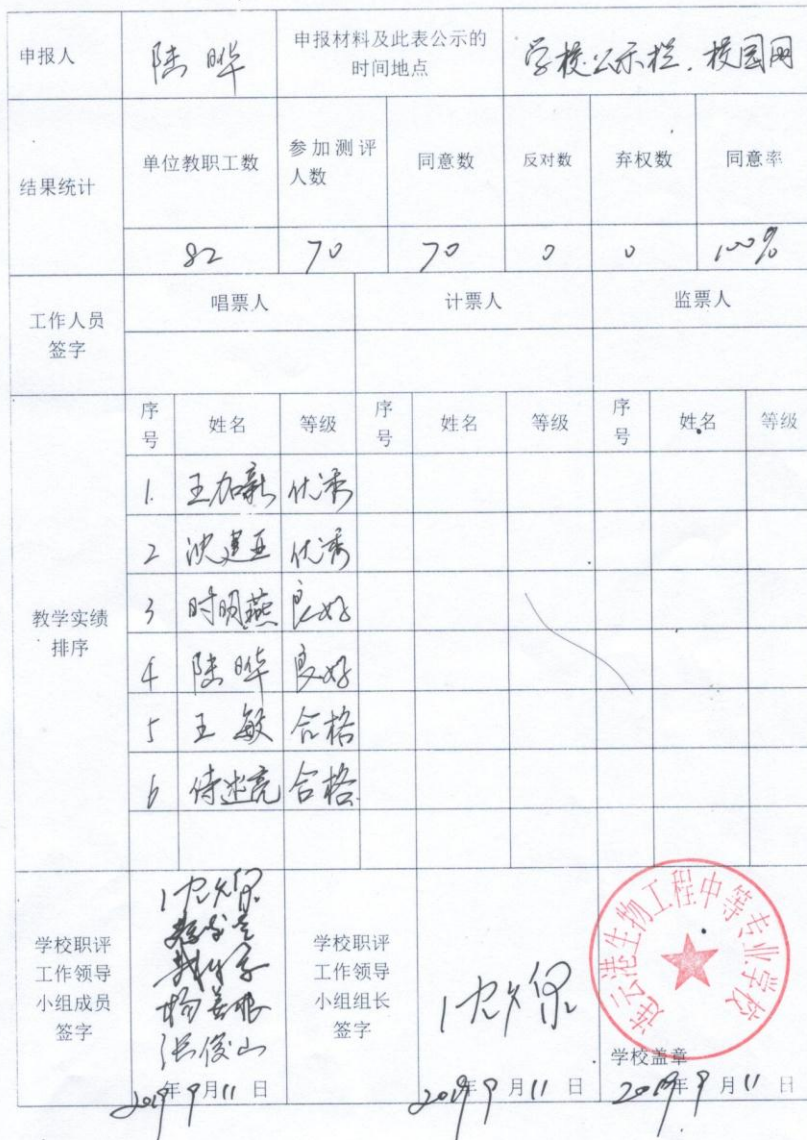 申报人 陆晔 申报材料及此表公示的时间地点 学校公示栏、校园网
结果统计 单位教职工数 参加测评人数 同意数 反对数 弃权数 同意率
82 70 70 0 0 100%
工作人员签字 唱票人 计票人 监票人
教学实绩排序 序号 姓名 等级 序号 姓名 等级 序号 姓名 等级
1. 王加新 优秀
2 沈建亚 优秀
3 时明燕 良好
4 陆晔 良好
5 王敏 合格
6 侍述亮 合格
学校职评工作领导小组成员签字
杨善根
张俊山
2019年9月11日
学校职评工作领导小组组长签字
2019年9月11日
连云港生物工程中等专业学校
学校盖章
2019年9月11日